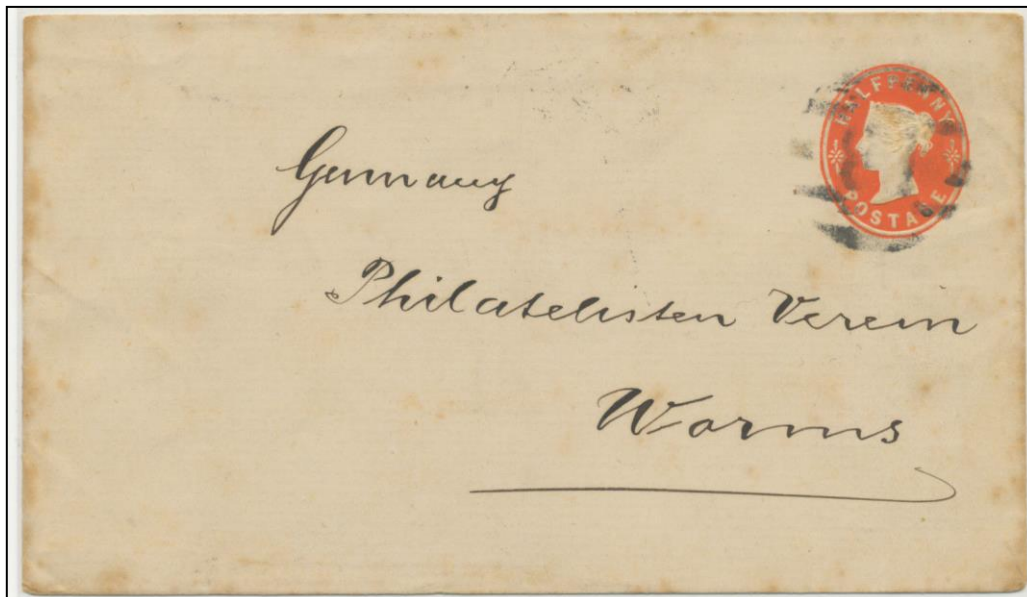 HALFPENNY
POSTAGE
Germany
Philatelisten Verein
Worms